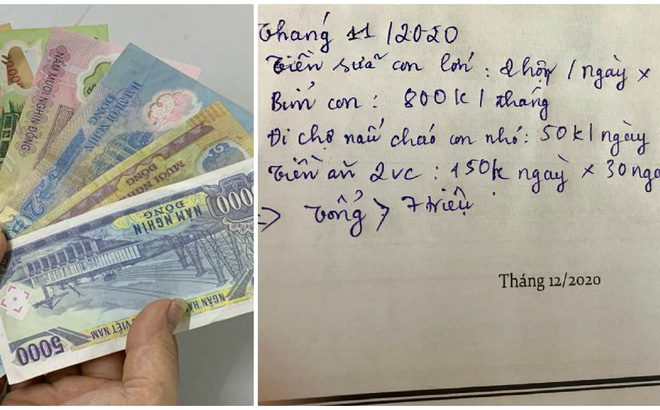 NĂM MƯƠI NGHÌN ĐỒNG
HAI MƯƠI NGHÌN
ĐỒNG
MƯỜI NGHÌN
NĂM NGHÌN
ĐỒNG
5000
NGÂN HÀ
VIỆT NAM
5000
Tháng 11/2020
Tiền sữa con lớn: 2 hộp / ngày ×
Bỉm con: 800k / tháng
Đi chợ nấu cháo con nhỏ: 50k / ngày
Tiền ăn 2vc: 150k ngày × 30 ngà
=> Tổng > 7 triệu
Tháng 12/2020